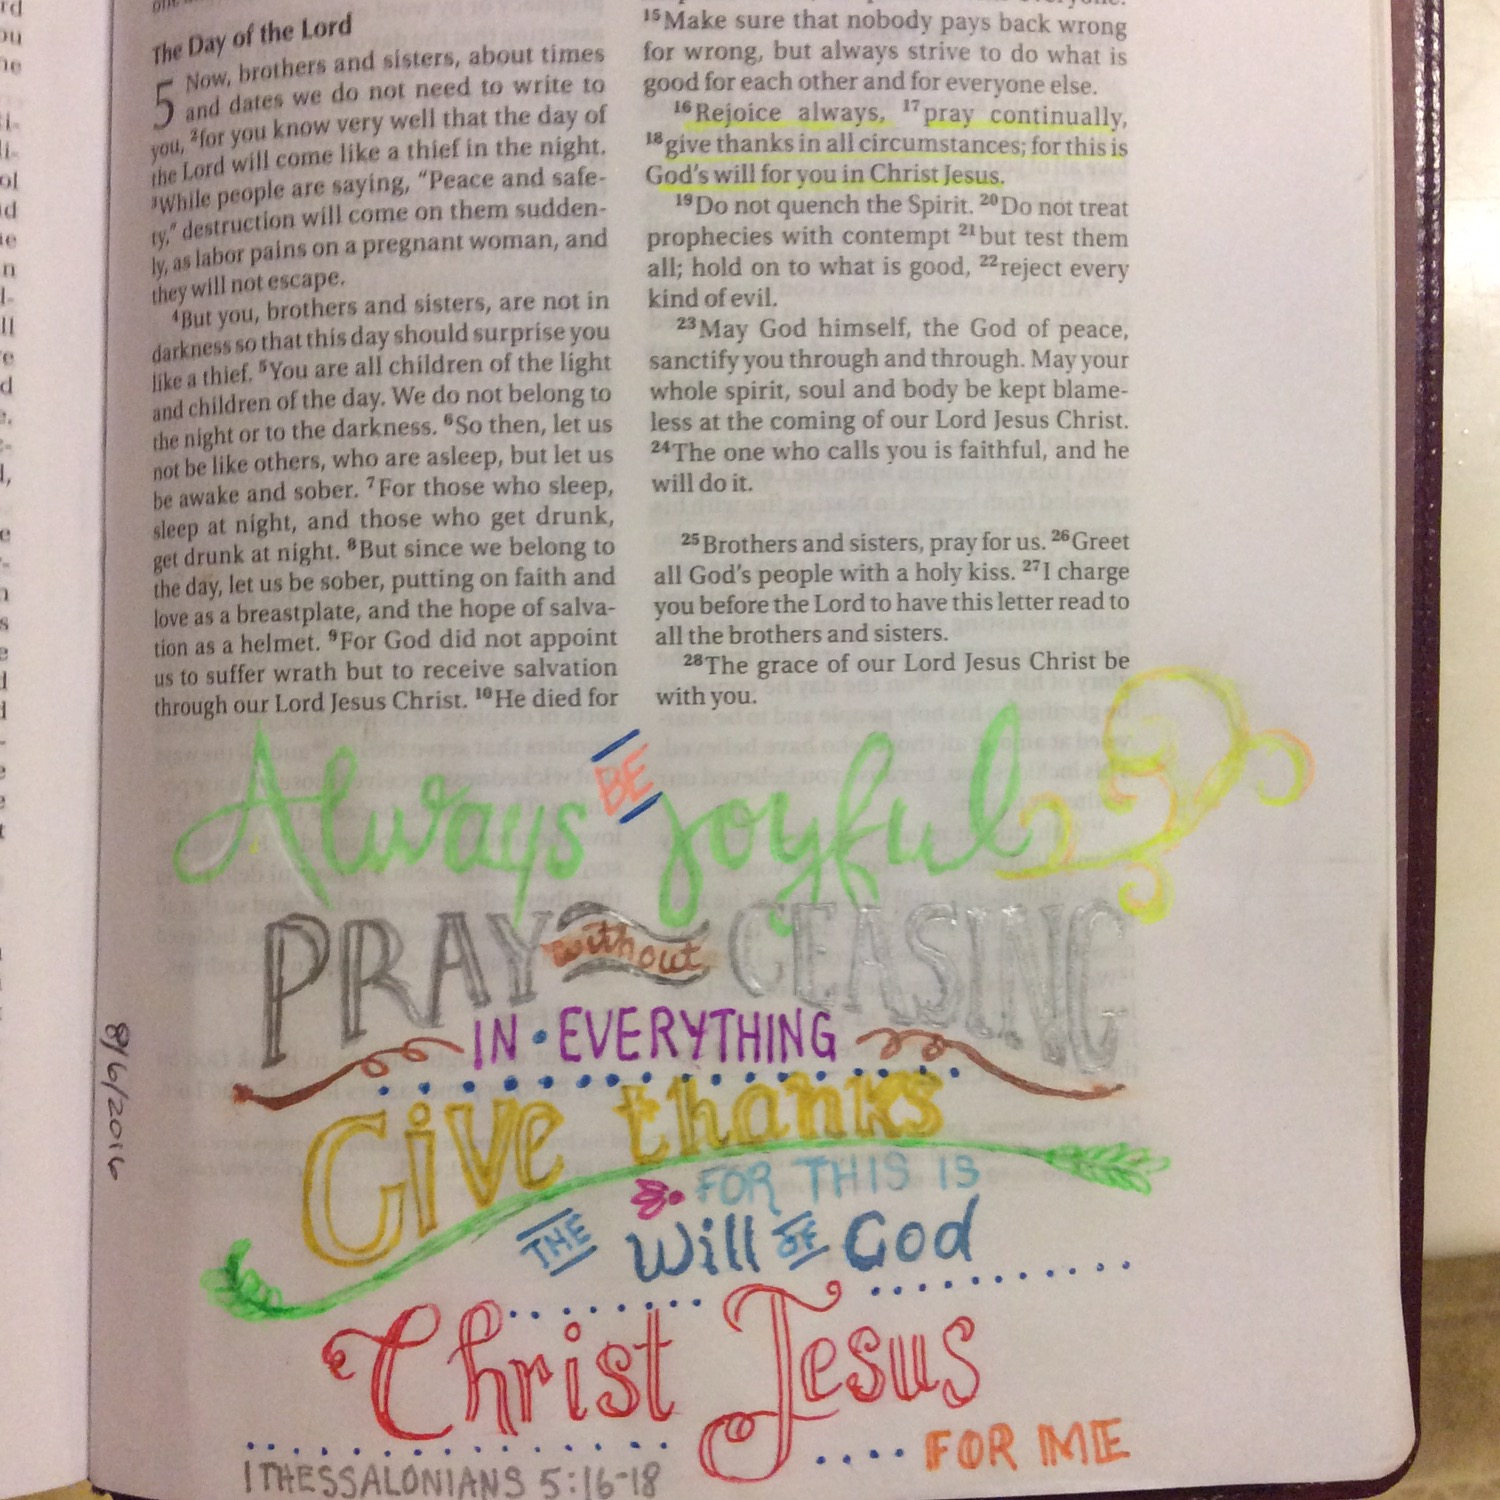 The Day of the Lord
5 Now, brothers and sisters, about times
and dates we do not need to write to
you, 2for you know very well that the day of
the Lord will come like a thief in the night.
3While people are saying, "Peace and safe-
ty," destruction will come on them sudden-
ly, as labor pains on a pregnant woman, and
they will not escape.
4But you, brothers and sisters, are not in
darkness so that this day should surprise you
like a thief. 5You are all children of the light
and children of the day. We do not belong to
the night or to the darkness. 6So then, let us
not be like others, who are asleep, but let us
be awake and sober. 7For those who sleep,
sleep at night, and those who get drunk,
get drunk at night. 8But since we belong to
the day, let us be sober, putting on faith and
love as a breastplate, and the hope of salva-
tion as a helmet. 9For God did not appoint
us to suffer wrath but to receive salvation
through our Lord Jesus Christ. 10He died for
15Make sure that nobody pays back wrong
for wrong, but always strive to do what is
good for each other and for everyone else.
16Rejoice always, 17pray continually,
18give thanks in all circumstances; for this is
God's will for you in Christ Jesus.
19Do not quench the Spirit. 20Do not treat
prophecies with contempt 21but test them
all; hold on to what is good, 22reject every
kind of evil.
23May God himself, the God of peace,
sanctify you through and through. May your
whole spirit, soul and body be kept blame-
less at the coming of our Lord Jesus Christ.
24The one who calls you is faithful, and he
will do it.
25Brothers and sisters, pray for us. 26Greet
all God's people with a holy kiss. 27I charge
you before the Lord to have this letter read to
all the brothers and sisters.
28The grace of our Lord Jesus Christ be
with you.
Always BE joyful
PRAY without CEASING
IN • EVERYTHING
Give thanks
FOR THIS IS
THE Will OF God
Christ Jesus
FOR ME
1 THESSALONIANS 5:16-18
8/6/2016